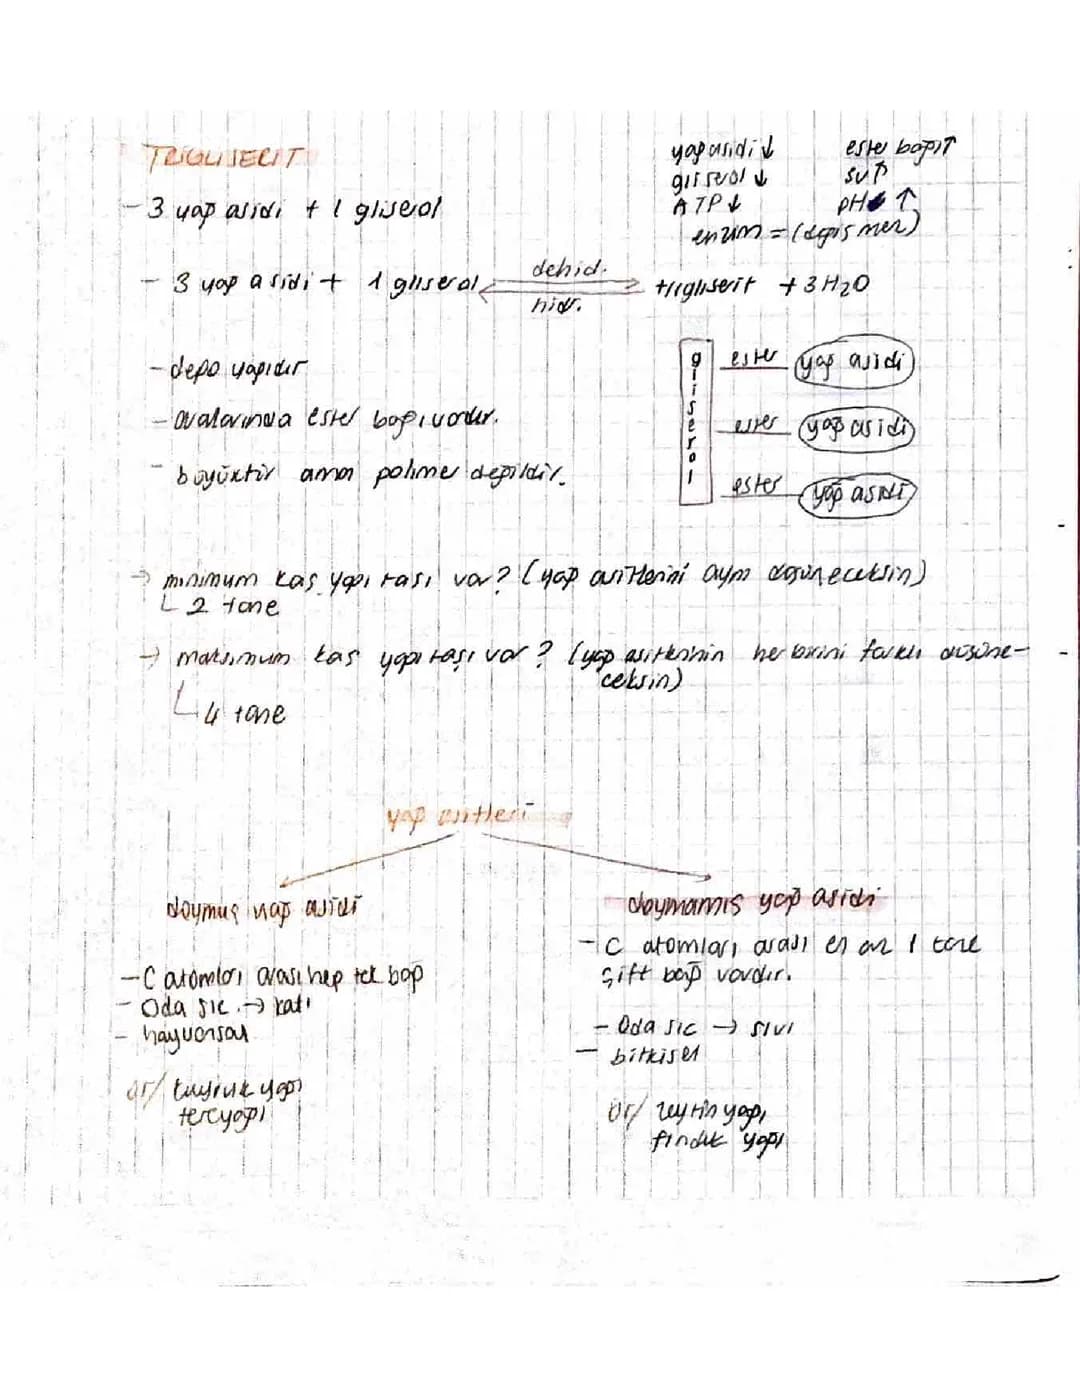 TRİGLİSERİT
yağ asidi ↓ ester bağı ↑
gliserol ↓ su ↑
ATP ↓ pH ↑
enzim = (değişmez)
- 3 yağ asidi + 1 gliserol
- 3 yağ asidi + 1 gliserol dehid. hidr. trigliserit + 3H₂O
- depo yağıdır
- aralarında ester bağı vardır.
- büyüktür ama polimer değildir.
gliserol
ester yağ asidi
ester yağ asidi
ester yağ asidi
→ minimum kaç yapı taşı var? (yağ asitlerini aynı düşüneceksin)
2 tane
→ maksimum kaç yapı taşı var? (yağ asitlerinin her birini farklı düşüne-
ceksin)
4 tane
yağ asitleri
doymuş yağ asidi
- C atomları arası hep tek bağ
- Oda sıc. → katı
- hayvansal
ör/ kuyruk yağı
tereyağı
doymamış yağ asidi
- C atomları arası en az 1 tane
çift bağ vardır.
- Oda sıc → sıvı
- bitkisel
ör/ zeytin yağı,
fındık yağı